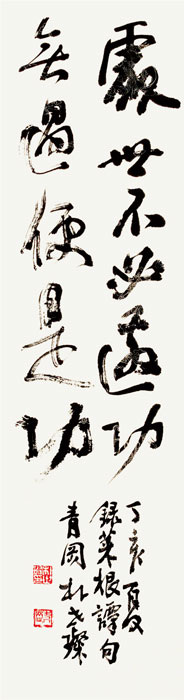 處世不必邀功
無過便是功
丁亥夏
錄菜根譚句
青岡朴孝燦